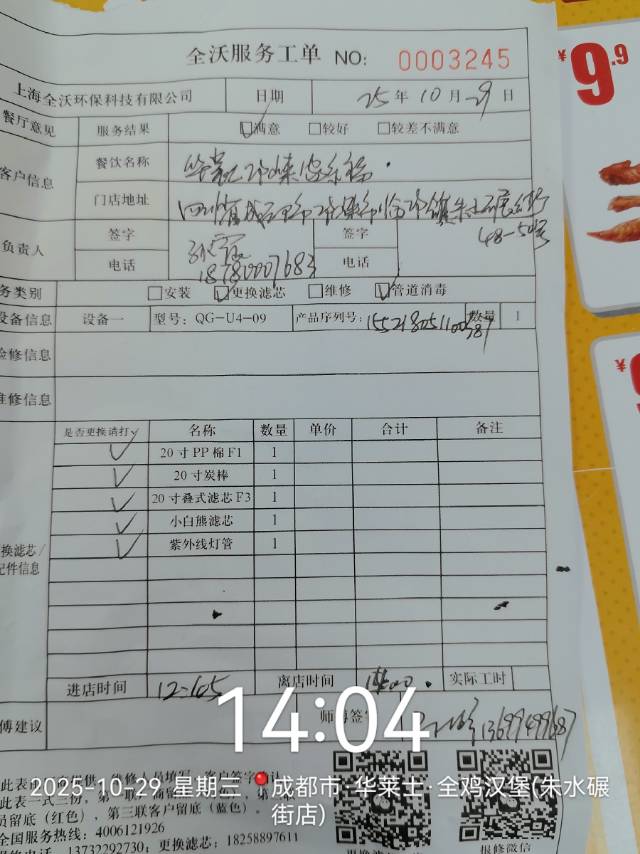 全沃服务工单 NO: 0003245
¥9.9
上海全沃环保科技有限公司 日期 25年10月29日
餐厅意见 服务结果 满意 较好 较差不满意
客户信息 餐饮名称
门店地址 48-50号
负责人 签字 签字
电话 18780007683 电话
务类别 安装 更换滤芯 维修 管道消毒
设备信息 设备一 型号: QG-U4-09 产品序列号: 数量 1
检修信息
维修信息
是否更换请打✓ 名称 数量 单价 合计 备注
✓ 20寸PP棉F1 1
✓ 20寸炭棒 1
✓ 20寸叠式滤芯F3 1
✓ 小白熊滤芯 1
✓ 紫外线灯管 1
换滤芯/
配件信息
进店时间 离店时间 实际工时
14:04
傅建议 师傅签
2025-10-29 星期三 成都市·华莱士·全鸡汉堡(朱水碾街店)
此表一式三份,
员留底(红色),第三联客户留底(蓝色)。
全国服务热线: 4006121926
13732292730; 更换滤芯: 18258897611
报修微信